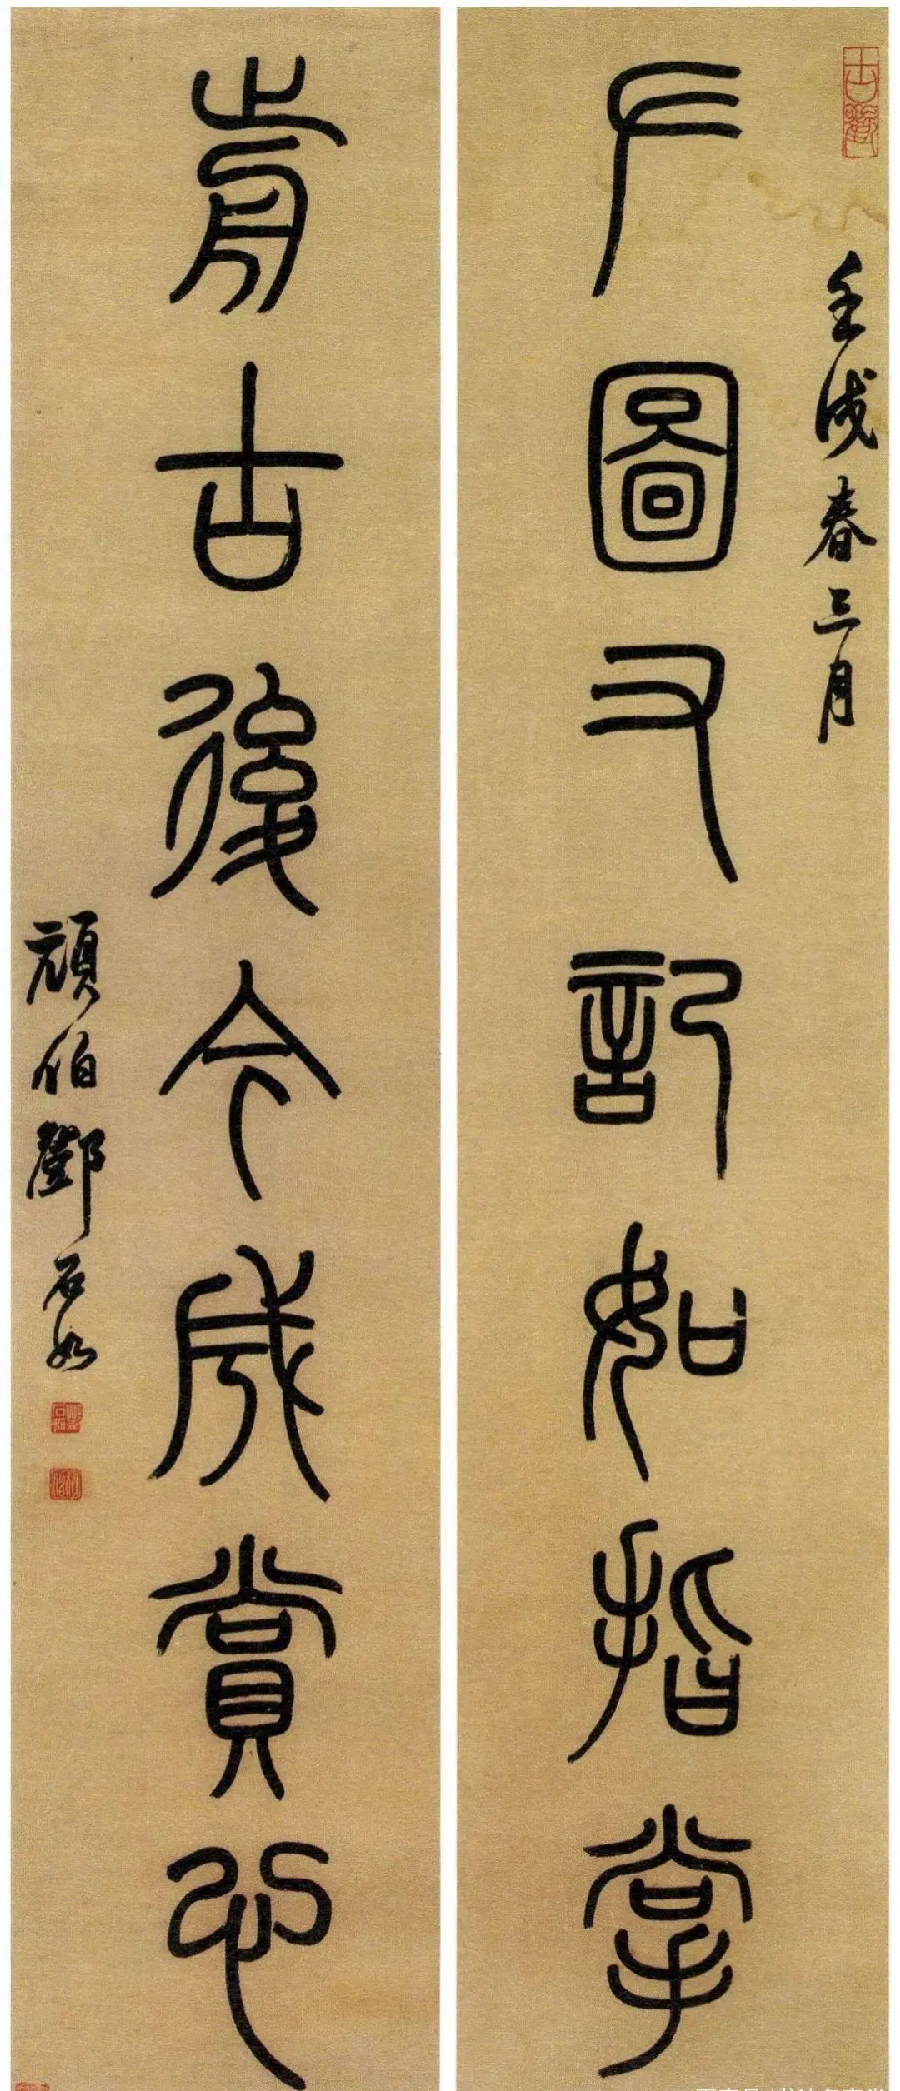 壬戌春三月
𠂇圖又記如指掌
歬古後今成賞心
頑伯鄧石如